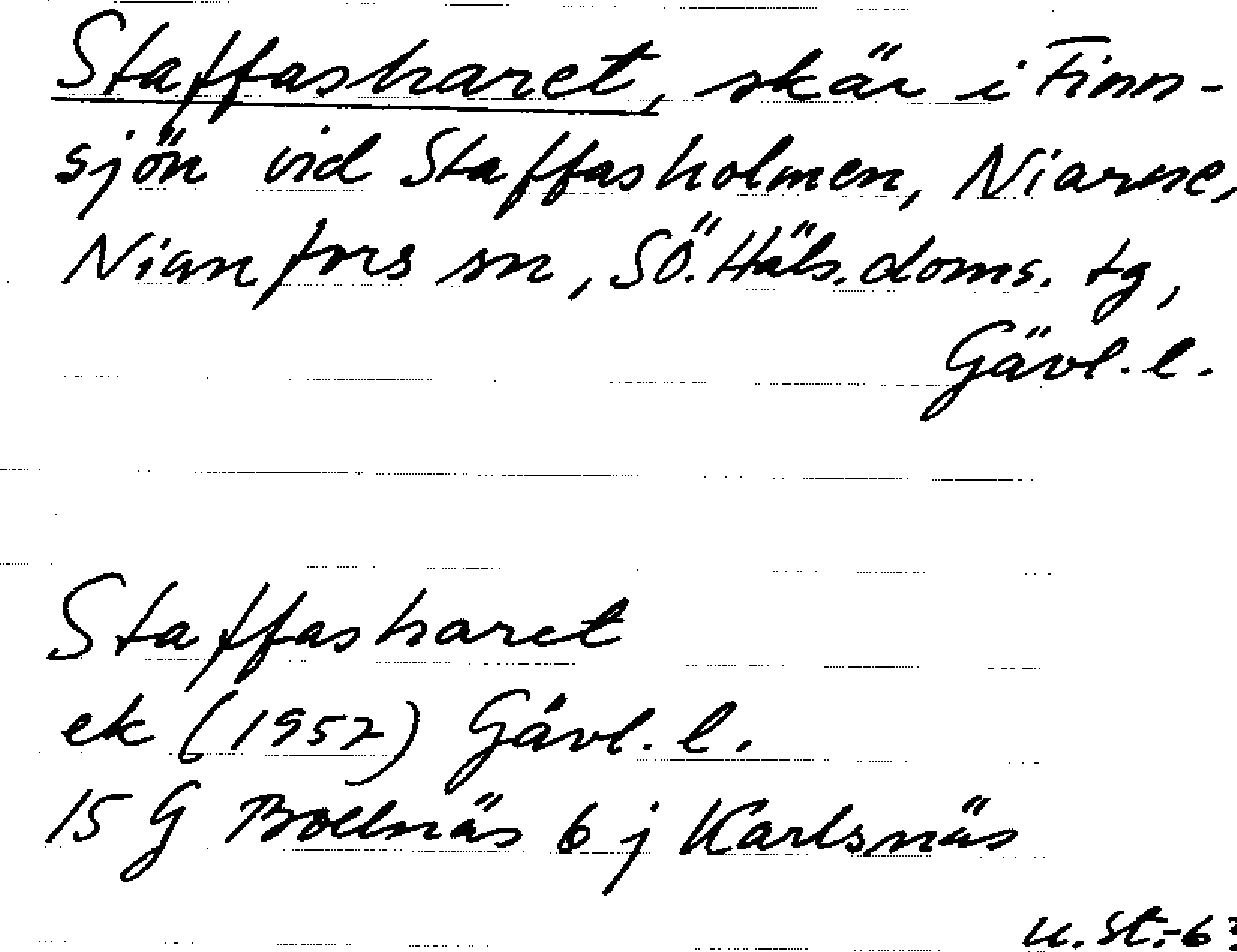 Staffasharet, skär i Finn-
sjön vid Staffasholmen, Niarne,
Nianfors sn, SÖ. Häls. doms. tg,
Gävl. l.
Staffasharet
ek (1957) Gävl. l.
15 G Bollnäs 6 j Karlsnäs
u. St.-63